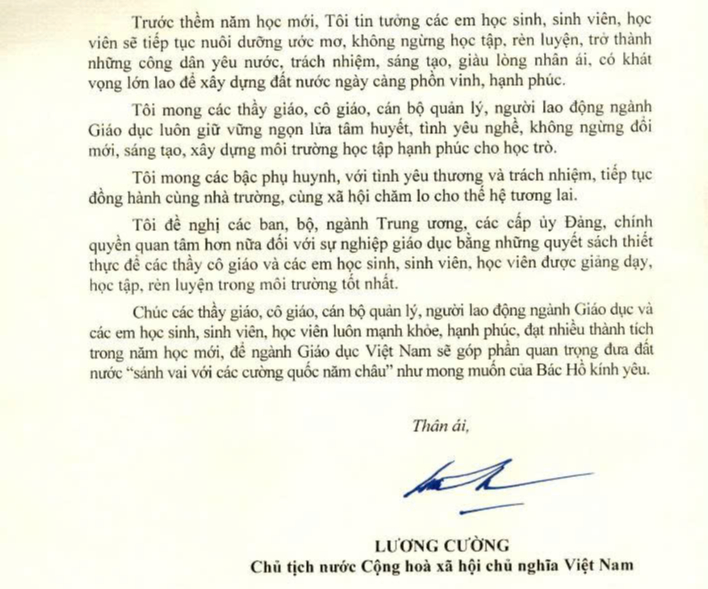 Trước thềm năm học mới, Tôi tin tưởng các em học sinh, sinh viên, học
viên sẽ tiếp tục nuôi dưỡng ước mơ, không ngừng học tập, rèn luyện, trở thành
những công dân yêu nước, trách nhiệm, sáng tạo, giàu lòng nhân ái, có khát
vọng lớn lao để xây dựng đất nước ngày càng phồn vinh, hạnh phúc.
Tôi mong các thầy giáo, cô giáo, cán bộ quản lý, người lao động ngành
Giáo dục luôn giữ vững ngọn lửa tâm huyết, tình yêu nghề, không ngừng đổi
mới, sáng tạo, xây dựng môi trường học tập hạnh phúc cho học trò.
Tôi mong các bậc phụ huynh, với tình yêu thương và trách nhiệm, tiếp tục
đồng hành cùng nhà trường, cùng xã hội chăm lo cho thế hệ tương lai.
Tôi đề nghị các ban, bộ, ngành Trung ương, các cấp ủy Đảng, chính
quyền quan tâm hơn nữa đối với sự nghiệp giáo dục bằng những quyết sách thiết
thực để các thầy cô giáo và các em học sinh, sinh viên, học viên được giảng dạy,
học tập, rèn luyện trong môi trường tốt nhất.
Chúc các thầy giáo, cô giáo, cán bộ quản lý, người lao động ngành Giáo dục và
các em học sinh, sinh viên, học viên luôn mạnh khỏe, hạnh phúc, đạt nhiều thành tích
trong năm học mới, để ngành Giáo dục Việt Nam sẽ góp phần quan trọng đưa đất
nước “sánh vai với các cường quốc năm châu” như mong muốn của Bác Hồ kính yêu.
Thân ái,
LƯƠNG CƯỜNG
Chủ tịch nước Cộng hoà xã hội chủ nghĩa Việt Nam